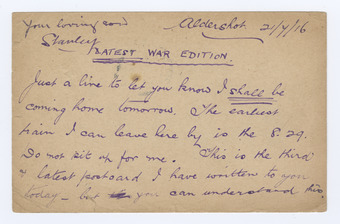 Your loving son
Stanley
Aldershot 21/7/16
LATEST WAR EDITION.
Just a line to let you know I shall be
coming home tomorrow. The earliest
train I can leave here by is the 8.29.
Do not sit up for me. This is the third
& latest postcard I have written to you
today - but you can understand this.